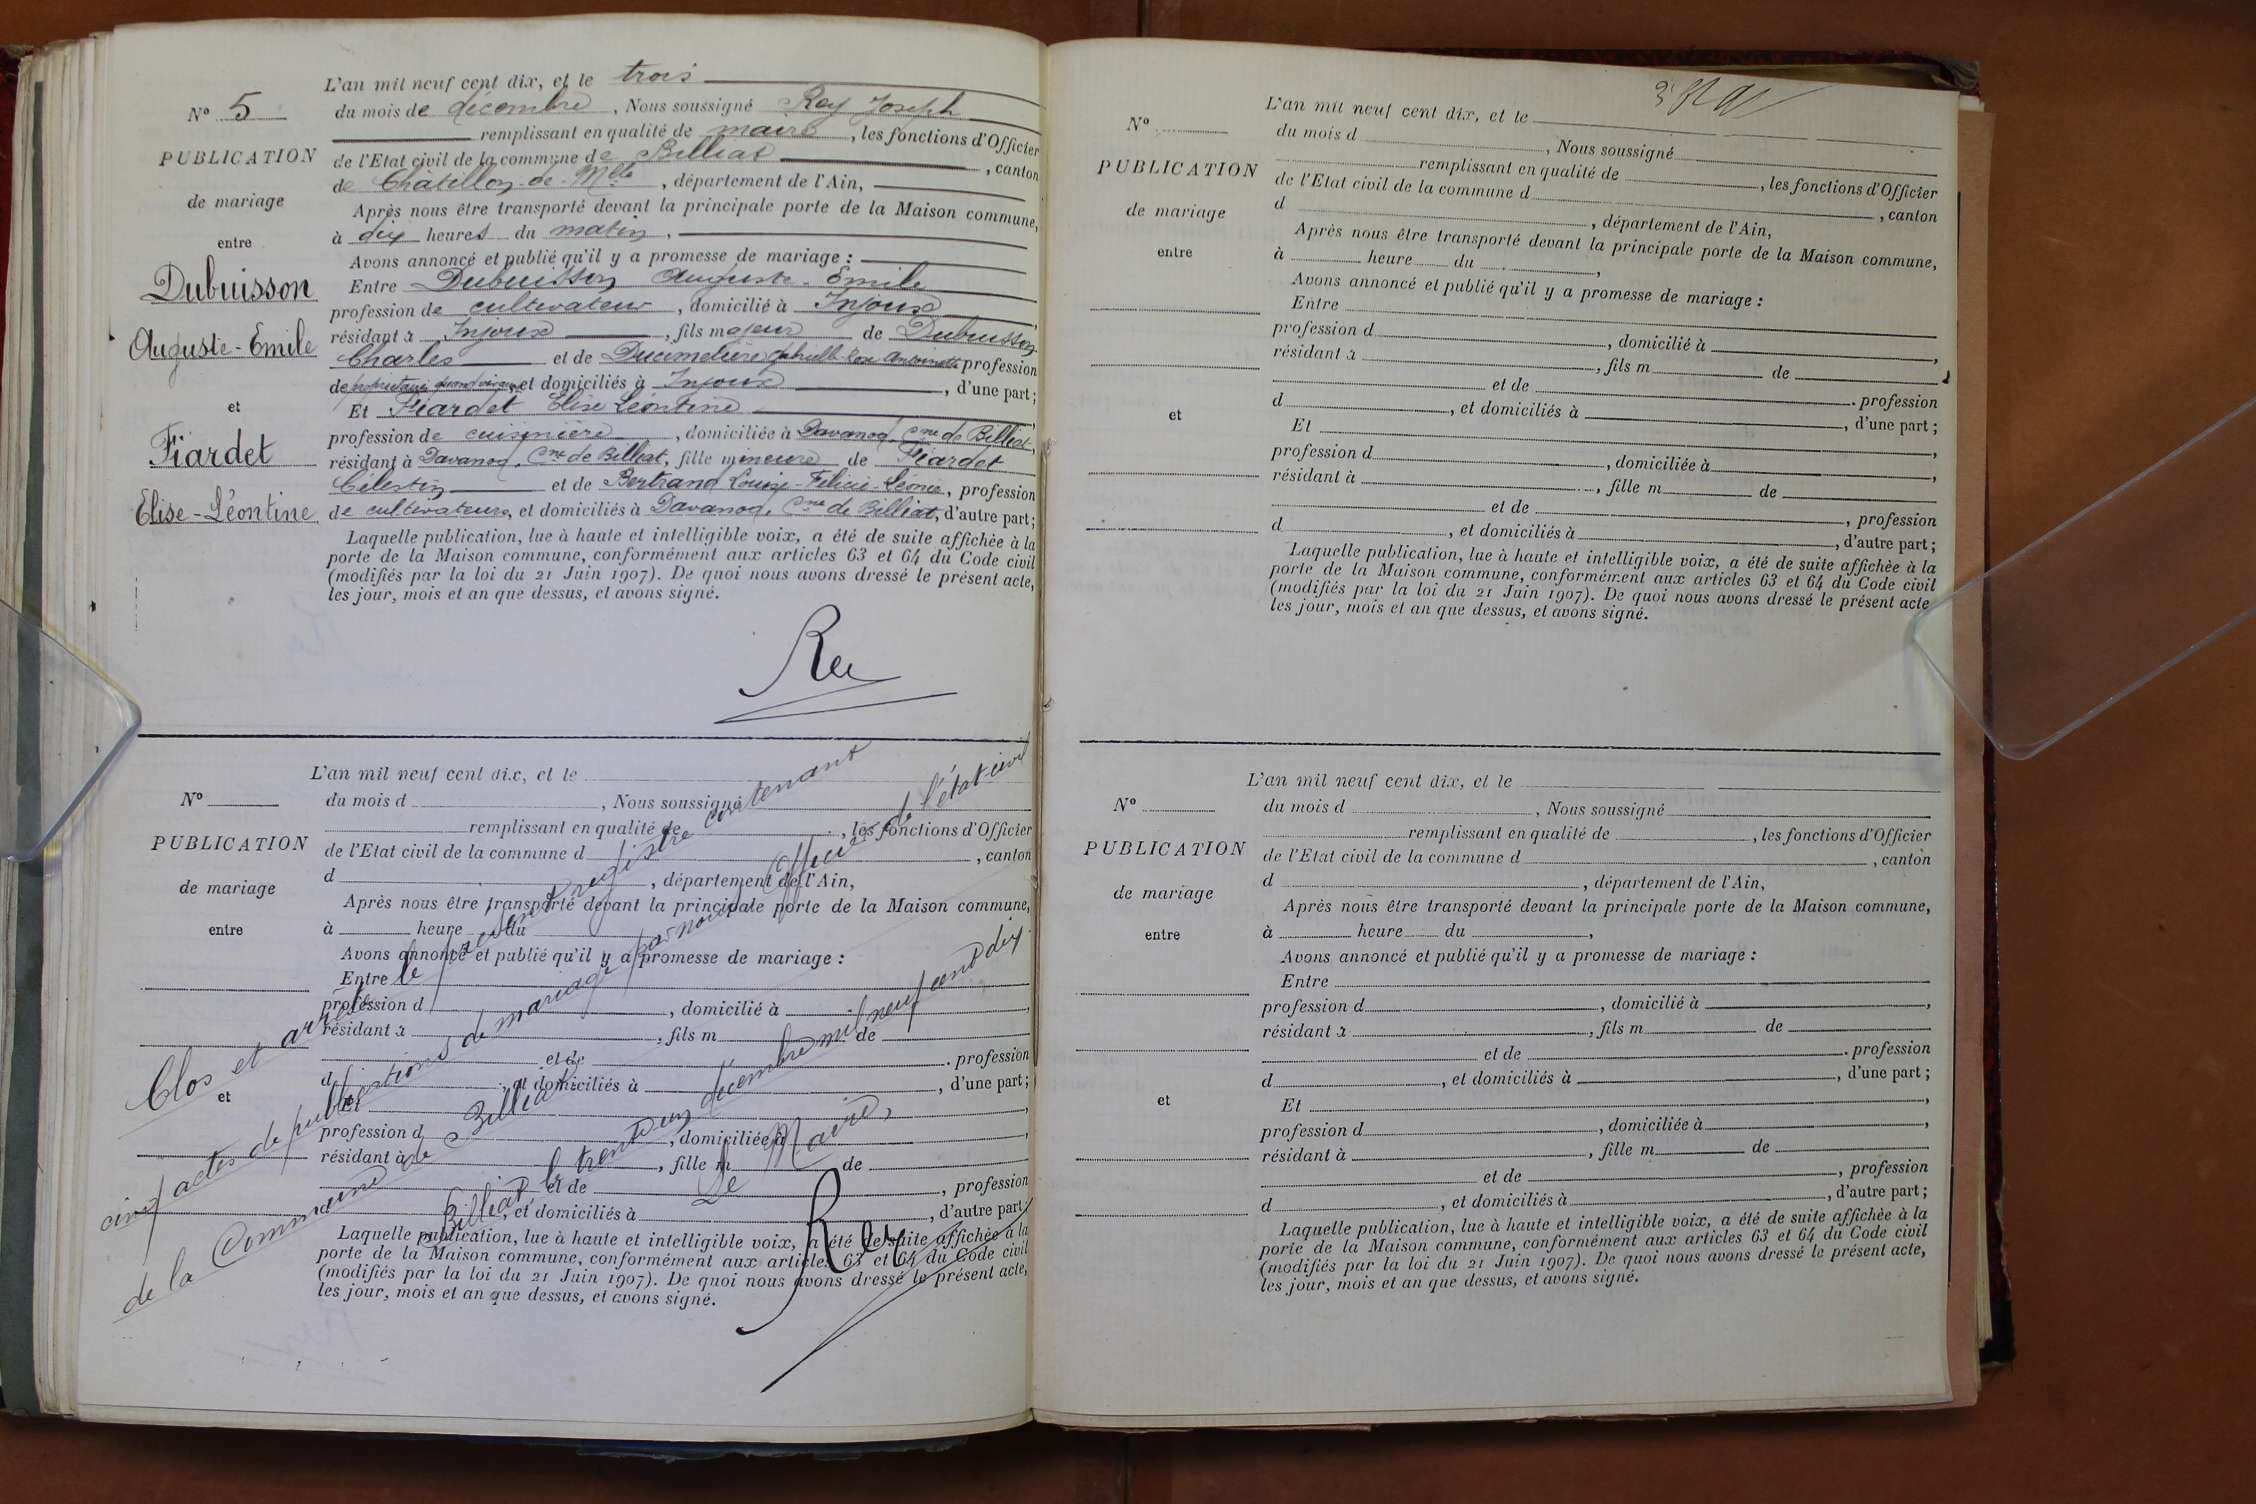 L'an mil neuf cent dix, et le trois
N° 5 du mois de décembre, Nous soussigné Rey Joseph
remplissant en qualité de maire, les fonctions d'Officier
PUBLICATION de l'Etat civil de la commune de Billiat, canton
de Châtillon-de-Mlle, département de l'Ain,
de mariage Après nous être transporté devant la principale porte de la Maison commune,
à dix heures du matin,
entre Avons annoncé et publié qu'il y a promesse de mariage :
Dubuisson Entre Dubuisson Auguste-Emile
profession de cultivateur, domicilié à Injoux,
Auguste-Emile résidant à Injoux, fils majeur de Dubuisson
Charles et de Ducimetière profession
de et domiciliés à Injoux, d'une part;
et Et Fiardet Elise Léontine
Fiardet profession de cuisinière, domiciliée à Davanod, Cne de Billiat,
résidant à Davanod, Cne de Billiat, fille mineure de Fiardet
Célestin et de Bertrand Louise-Félicie-Léonie, profession
Elise-Léontine de cultivateurs, et domiciliés à Davanod, Cne de Billiat, d'autre part;
Laquelle publication, lue à haute et intelligible voix, a été de suite affichée à la
porte de la Maison commune, conformément aux articles 63 et 64 du Code civil
(modifiés par la loi du 21 Juin 1907). De quoi nous avons dressé le présent acte,
les jour, mois et an que dessus, et avons signé.
Rey
L'an mil neuf cent dix, et le
N° du mois d , Nous soussigné
remplissant en qualité de , les fonctions d'Officier
PUBLICATION de l'Etat civil de la commune d , canton
d , département de l'Ain,
de mariage Après nous être transporté devant la principale porte de la Maison commune,
entre à heure du
Avons annoncé et publié qu'il y a promesse de mariage :
Entre
profession d , domicilié à ,
résidant à , fils m de
et de . profession
d , et domiciliés à , d'une part;
et Et ,
profession d , domiciliée à ,
résidant à , fille m de
et de , profession
d , et domiciliés à , d'autre part;
Laquelle publication, lue à haute et intelligible voix, a été de suite affichée à la
porte de la Maison commune, conformément aux articles 63 et 64 du Code civil
(modifiés par la loi du 21 Juin 1907). De quoi nous avons dressé le présent acte,
les jour, mois et an que dessus, et avons signé.
Clos et arrêté le présent registre contenant
cinq actes de publications de mariage par nous Officier de l'état civil
de la Commune de Billiat
Billiat, le trente un décembre mil neuf cent dix
Le Maire,
Rey
L'an mil neuf cent dix, et le
N° du mois d , Nous soussigné
remplissant en qualité de , les fonctions d'Officier
PUBLICATION de l'Etat civil de la commune d , canton
d , département de l'Ain,
de mariage Après nous être transporté devant la principale porte de la Maison commune,
entre à heure du ,
Avons annoncé et publié qu'il y a promesse de mariage :
Entre
profession d , domicilié à ,
résidant à , fils m de
et de . profession
d , et domiciliés à , d'une part;
et Et ,
profession d , domiciliée à ,
résidant à , fille m de
et de , profession
d , et domiciliés à , d'autre part;
Laquelle publication, lue à haute et intelligible voix, a été de suite affichée à la
porte de la Maison commune, conformément aux articles 63 et 64 du Code civil
(modifiés par la loi du 21 Juin 1907). De quoi nous avons dressé le présent acte
les jour, mois et an que dessus, et avons signé.
L'an mil neuf cent dix, et le
N° du mois d , Nous soussigné
remplissant en qualité de , les fonctions d'Officier
PUBLICATION de l'Etat civil de la commune d , canton
d , département de l'Ain,
de mariage Après nous être transporté devant la principale porte de la Maison commune,
entre à heure du ,
Avons annoncé et publié qu'il y a promesse de mariage :
Entre
profession d , domicilié à ,
résidant à , fils m de
et de . profession
d , et domiciliés à , d'une part;
et Et ,
profession d , domiciliée à ,
résidant à , fille m de
et de , profession
d , et domiciliés à , d'autre part;
Laquelle publication, lue à haute et intelligible voix, a été de suite affichée à la
porte de la Maison commune, conformément aux articles 63 et 64 du Code civil
(modifiés par la loi du 21 Juin 1907). De quoi nous avons dressé le présent acte,
les jour, mois et an que dessus, et avons signé.